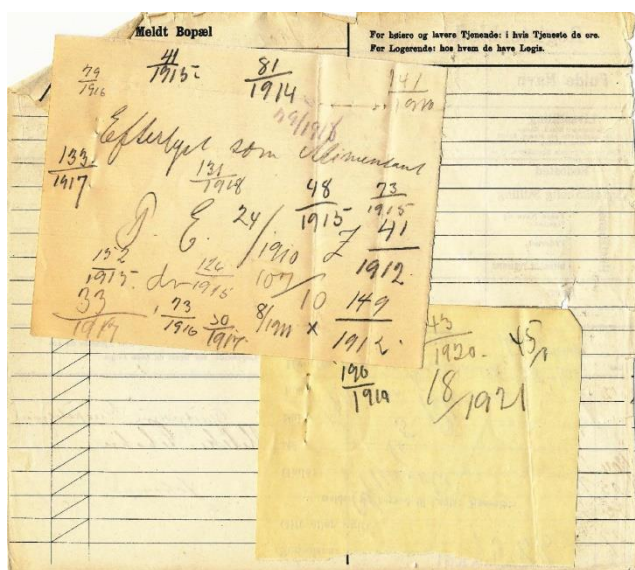 Meldt Bopæl
For høiere og lavere Tjenende: i hvis Tjeneste de ere.
For Logerende: hos hvem de have Logis.
79/1916 41/1915 81/1914 141/1910
79/1916
Efterlyst som Alimentant
133/1917 131/1918 48/1915 73/1915
P. E. 24/1910 Z 41/1912.
152/1915. 126/1915 107/10 149/1912.
33/1917 73/1916 30/1917. 8/1911 x
43/1920. 45/1
196/1919 18/1921